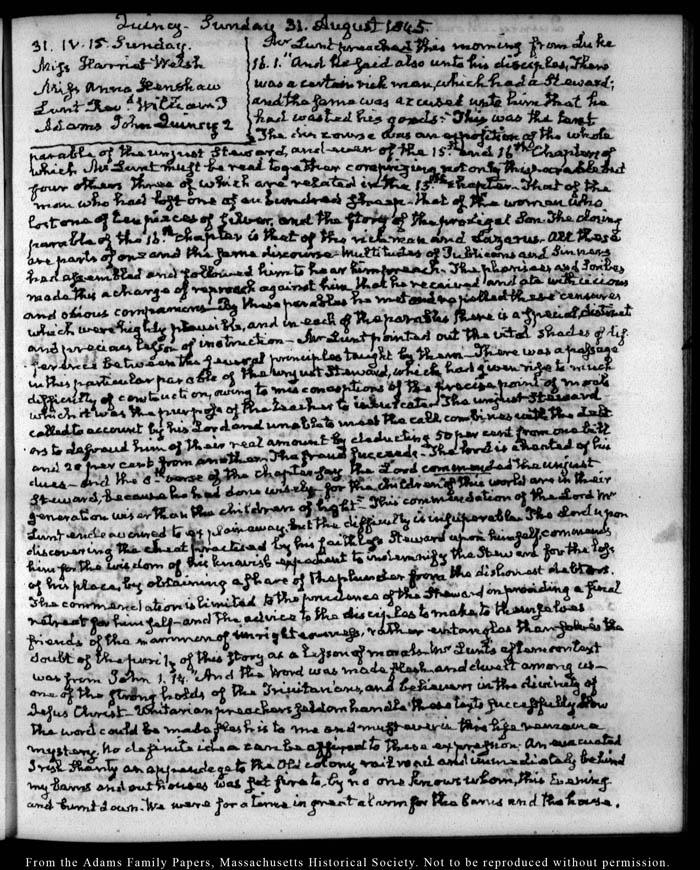 Quincy. Sunday 31. August 1845.
31. IV. 15. Sunday.
Miss Harriet Welsh
Miss Anna Henshaw
Lunt Rev'd William P
Adams John Quincy 2
Mr Lunt preached this morning from Luke
16. 1. "And he said also unto his disciples, There
was a certain rich man, which had a Steward;
and the same was accused unto him that he
had wasted his goods." This was the text
The discourse was an exposition of the whole
parable of the unjust Steward, and even of the 15th and 16th Chapters of
which Mr Lunt must be read together comprizing not only this parable but
four others three of which are related in the 15th chapter. That of the
man who had lost one of an hundred sheep. that of the woman who
lost one of ten pieces of silver, and the story of the prodigal Son. The closing
parable of the 16th chapter is that of the rich man and Lazarus. All these
are parts of one and the same discourse. Multitudes of Publicans and Sinners
had assembled and followed him to hear him preach. The pharisees and Scribes
made this a charge of reproach against him that he received and ate with vicious
and odious companions. By these parables he met and repelled these censures
which were highly plausible, and in each of the parables there is a special, distinct
and precious lesson of instruction. Mr Lunt pointed out the vital shades of dif-
ference between the general principles taught by them. There was a passage
in this particular parable of the unjust Steward, which had given rise to much
difficulty of construction, owing to misconceptions of the precise point of morals
which it was the purpose of the teacher to inculcate. The unjust Steward
called to account by his Lord and unable to meet the call combines with the debt
ors to defraud him of their real amount by deducting 50 per cent from one bill
and 20 per cent from another. The fraud succeeds. The lord is cheated of his
dues. and the 8th verse of the chapter say the Lord commended the unjust
Steward, because he had done wisely. for the children of this world are in their
generation wiser than the children of light. This commendation of the Lord Mr
Lunt endeavoured to explain away, but the difficulty is insuperable. The Lord upon
discovering the cheat practised by his faithless Steward upon himself, commends
him for the wisdom of his knavish expedient to indemnify the Steward for the loss
of his place, by obtaining a share of the plunder from the dishonest debtors.
The commendation is limited to the prudence of the Steward on providing a final
retreat for himself. and the advice to the disciples to make to themselves
friends of the mammon of unrighteousness, rather entangles than solves the
doubt of the purity of this story as a lesson of morals. Mr Lunt's afternoon text
was from John 1. 14. "And the Word was made flesh and dwelt among us —
one of the strong holds of the Trinitarians, and believers in the divinity of
Jesus Christ. Unitarian preachers seldom handle these texts successfully. How
the word could be made flesh is to me and must ever in this life remain a
mystery. No definite idea can be affixed to these expression. An evacuated
Irish Shanty an appendage to the Old colony railroad and immediately behind
my barns and out houses was set fire to, by no one knows whom, this Evening
and burnt down. We were for a time in great alarm for the barns and the house.
From the Adams Family Papers, Massachusetts Historical Society. Not to be reproduced without permission.